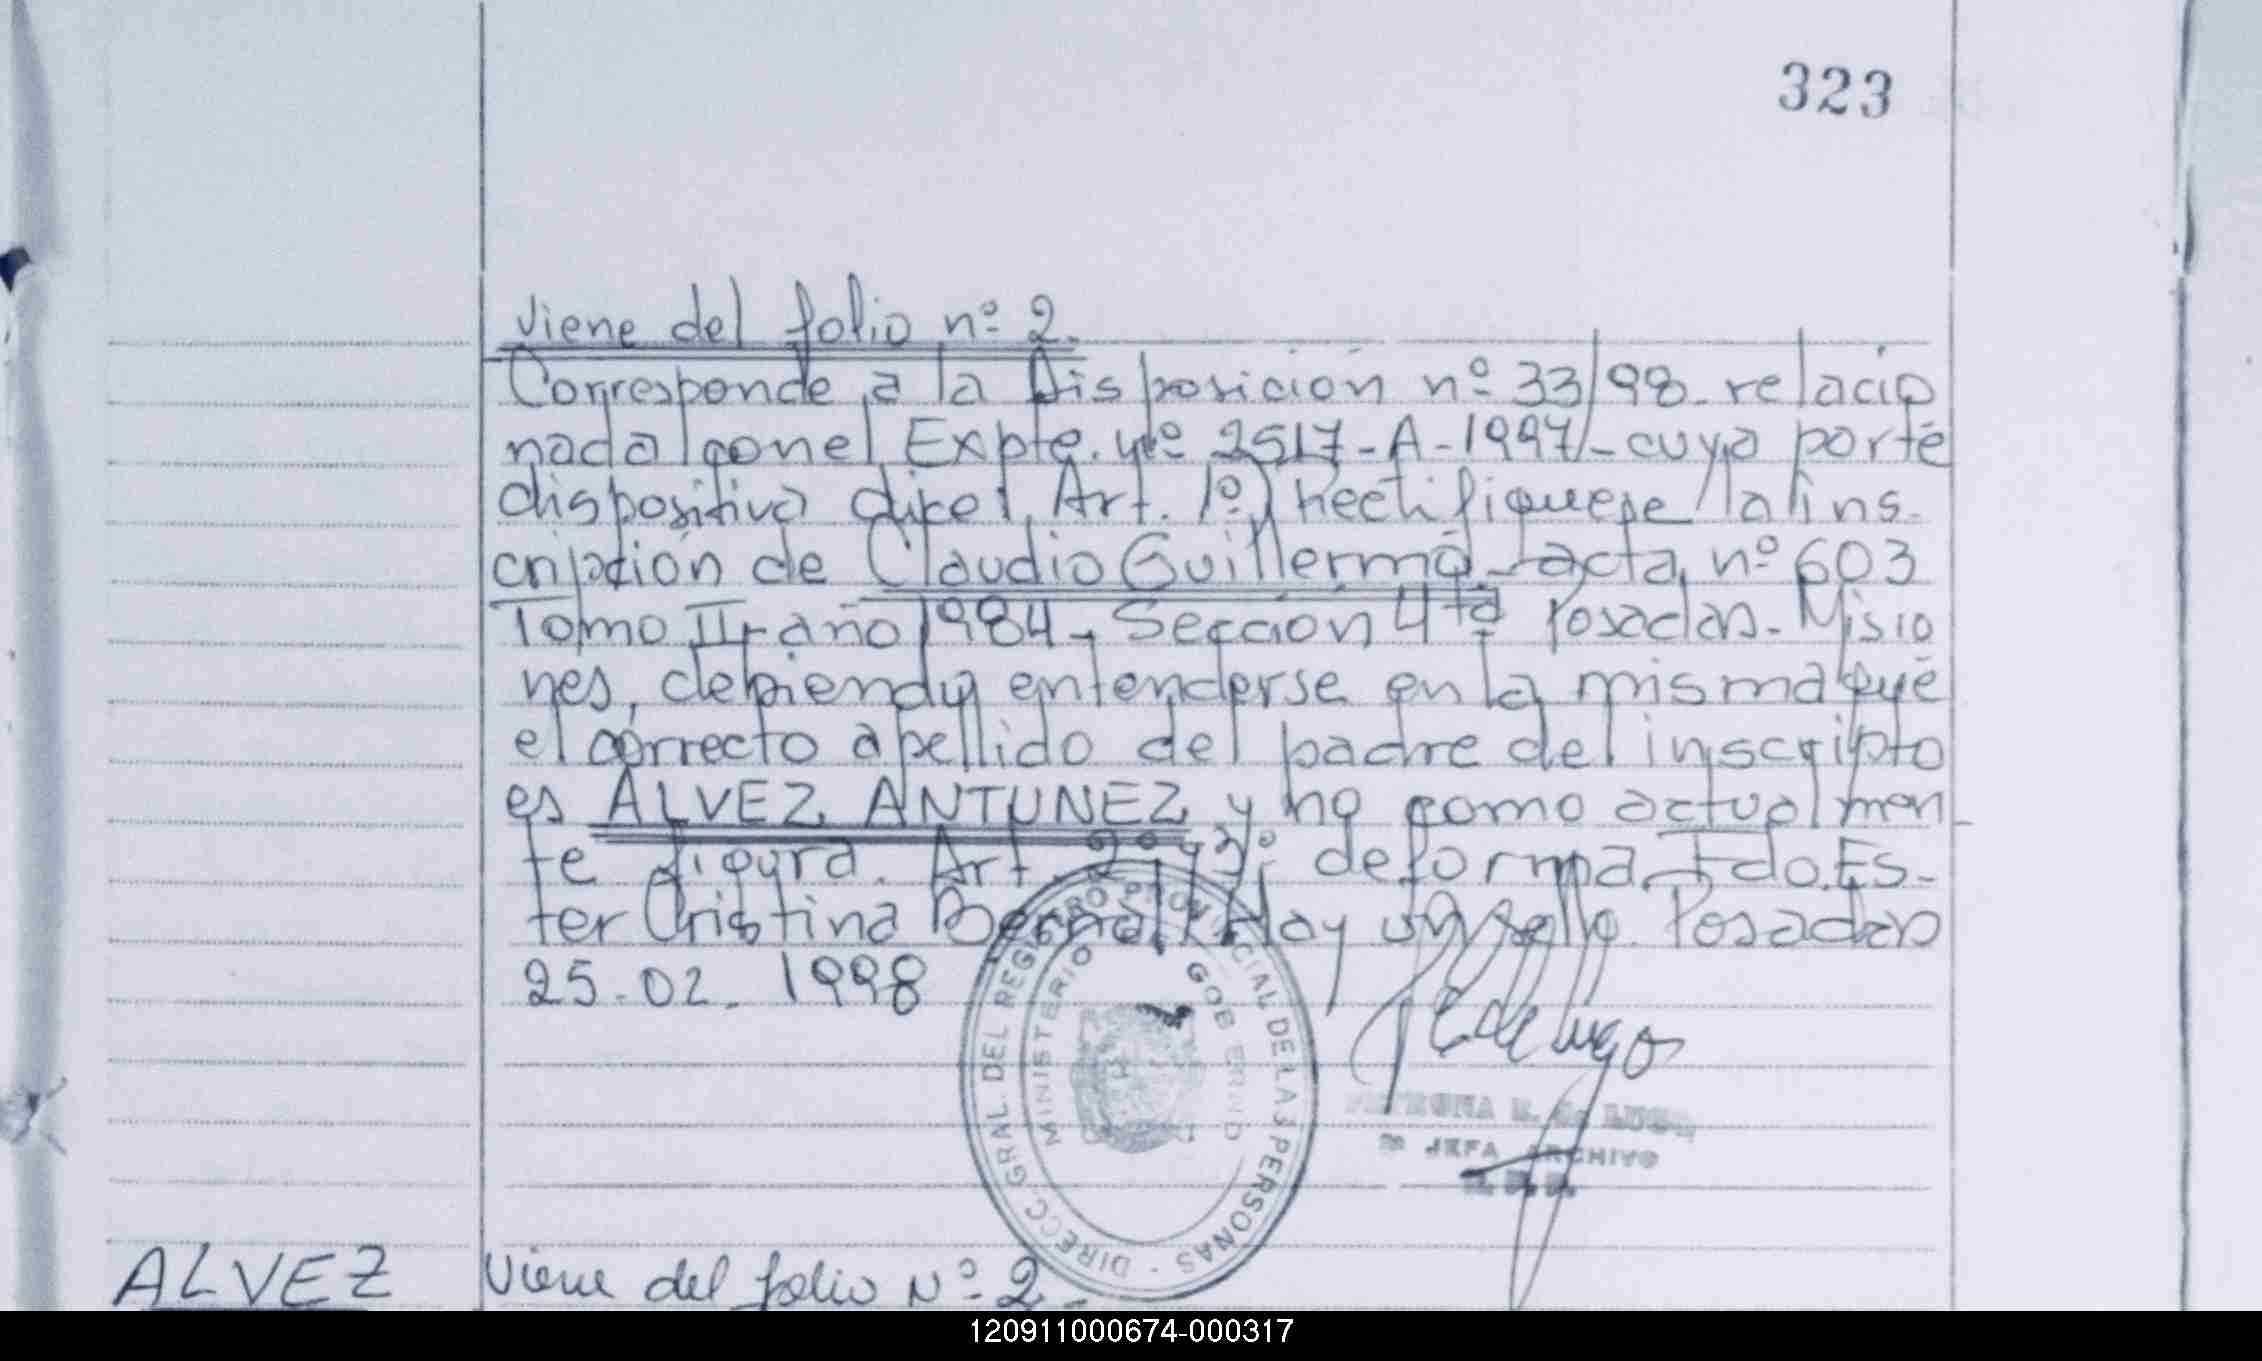 323
Viene del folio nº 2.
Corresponde a la Disposición nº 33/98 - relacio
nada con el Expte. nº 2517-A-1997 - cuya parte
dispositiva dice: Art. 1º) Rectifiquese la ins-
cripción de Claudio Guillermo - acta nº 603
Tomo II - año 1984 - Sección 4ta Posadas - Misio
nes, debiendo entenderse en la misma que
el correcto apellido del padre del inscripto
es ALVEZ ANTUNEZ y no como actualmen
te figura. Art. 2º y 3º: de forma. Fdo. Es-
ter Cristina Bernal. Hay un sello. Posadas
25-02-1998
DIRECC. GRAL. DEL REGISTRO PROVINCIAL DE LAS PERSONAS -
MINISTERIO GOBIERNO
PETRONA R. de LUGO
JEFA ARCHIVO
ALVEZ Viene del folio Nº 2 -
120911000674-000317